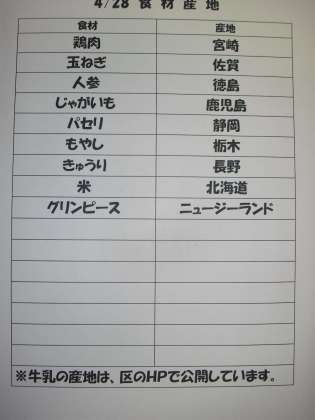 4/28 食材産地
食材 産地
鶏肉 宮崎
玉ねぎ 佐賀
人参 徳島
じゃがいも 鹿児島
パセリ 静岡
もやし 栃木
きゅうり 長野
米 北海道
グリンピース ニュージーランド
※牛乳の産地は、区のHPで公開しています。